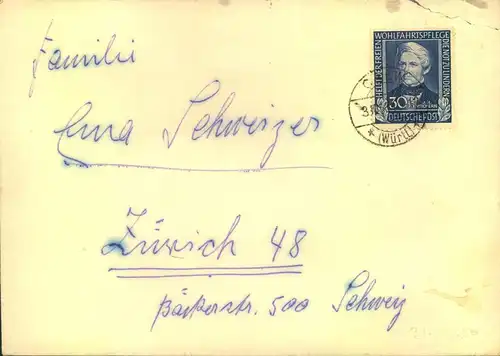 Familie
Erna Schweizer
Zürich 48
Bäckerstr. 500 Schweiz
HELFT DER FREIEN
WOHLFAHRTSPFLEGE
DIE NOT ZU LINDERN
30
DEUTSCHE POST
(Württ)